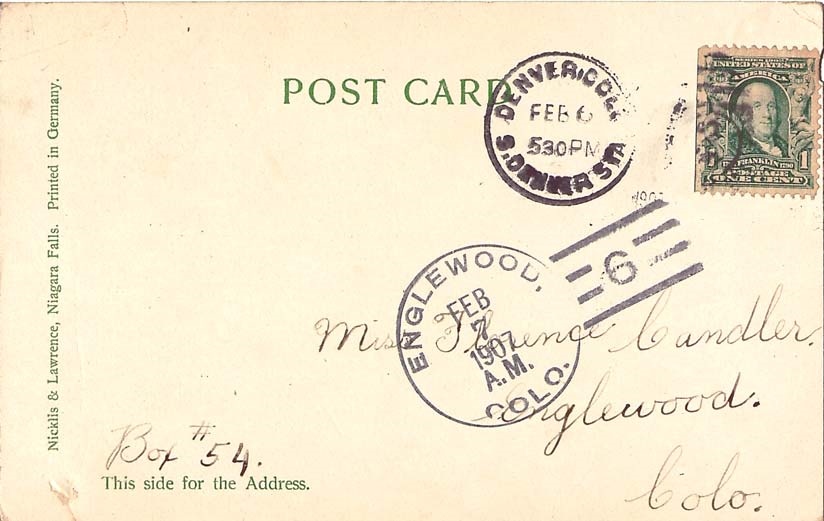 POST CARD
DENVER, COL
FEB 6
530 PM
S. DENVER STA
SERIES 1902
UNITED STATES OF
AMERICA
FRANKLIN 1790
POSTAGE
ONE CENT
1
190
6
ENGLEWOOD,
FEB
7
1907
A.M.
COLO.
Miss Florence Candler.
Englewood.
Colo.
Box # 54.
This side for the Address.
Nicklis & Lawrence, Niagara Falls. Printed in Germany.